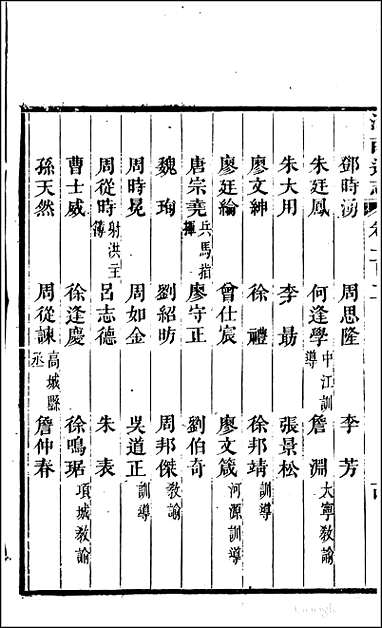 鄧時湧 周思隆 李芳
朱廷鳳 何逢學 中江訓導 詹淵 大寧敎諭
朱大用 李勗 張景松
廖文紳 徐禮 徐邦靖 訓導
廖廷綸 曾仕宸 廖文箴 河源訓導
唐宗堯 兵馬指揮 廖守正 劉伯奇
魏珣 劉紹昉 周邦傑 敎諭
周時冕 周如金 吳道正 訓導
周從時 射洪主簿 呂志德 朱表
曹士威 徐逢慶 徐鳴琚 項城敎諭
孫天然 周從諫 高城縣丞 詹仲春